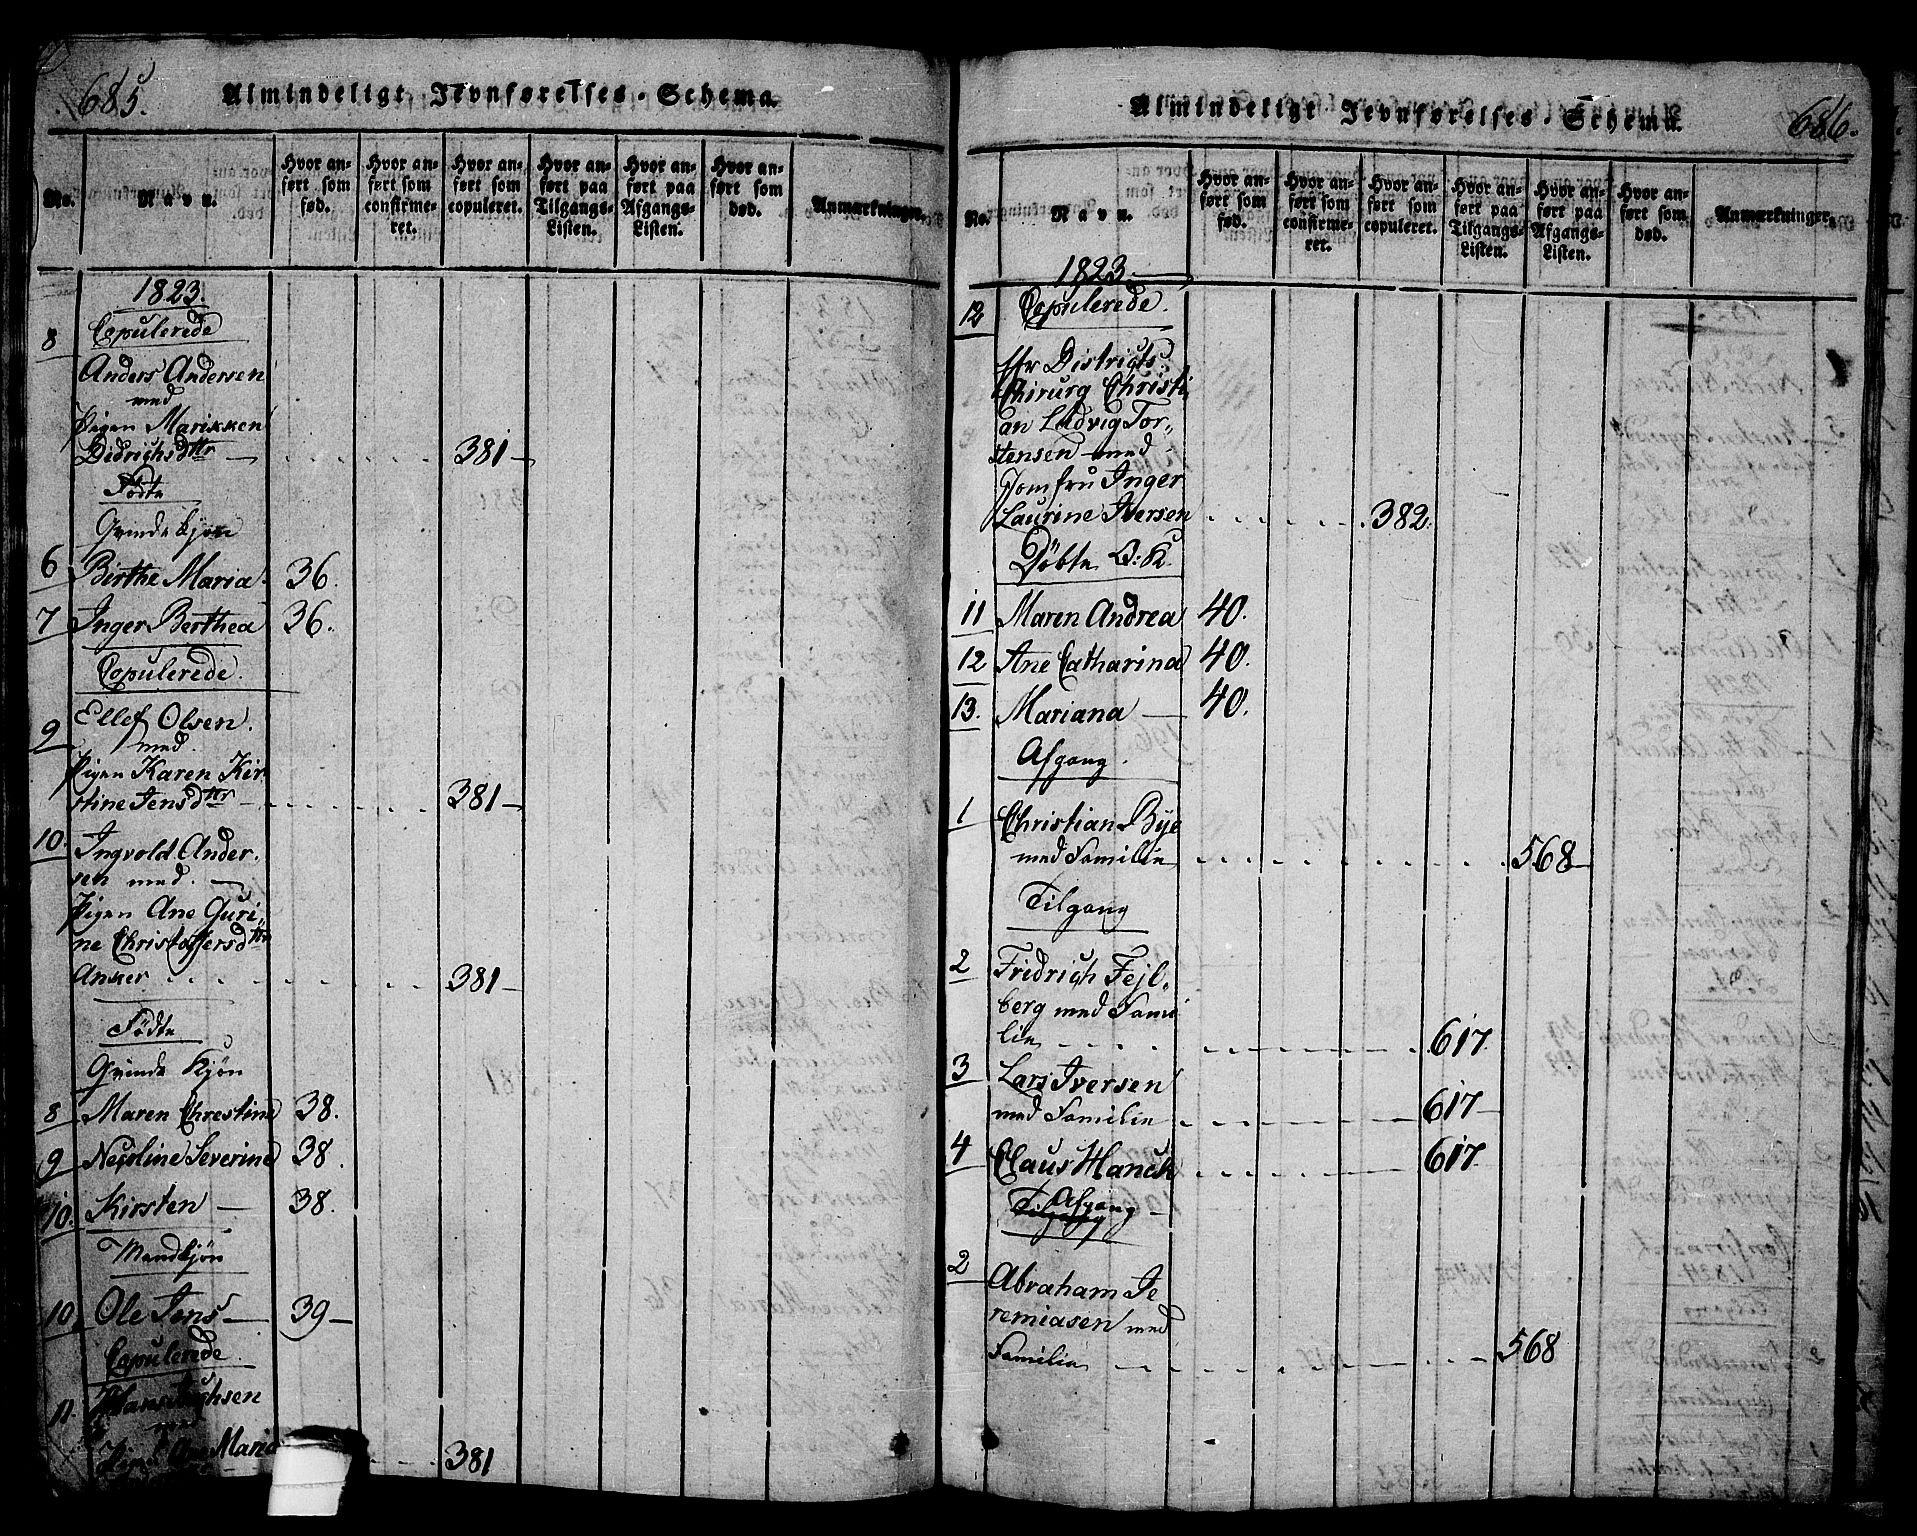 685.
Almindeligt Jevnførelses-Schema.
No.
Navn.
Hvor an-
ført som
fød.
Hvor an-
ført som
confirme-
ret.
Hvor an-
ført som
copuleret.
Hvor an-
ført paa
Tilgangs-
Listen.
Hvor an-
ført paa
Afgangs-
Listen.
Hvor an-
ført som
død.
Anmærkninger.
1823.
Copulerede
8
Anders Andersen
med
Pigen Marikken
Didrichsdttr 381
Fødte
Qvindekjøn
6 Birthe Maria 36.
7 Inger Berthea 36.
Copulerede.
9 Ellef Olsen.
med.
Pigen Karen Kir
stine Jensdttr 381
10. Ingvold Ander.
sen med.
Pigen Ane Guri
ne Christoffersdttr
Anker 381
Födte
Qvinde Kjön
8 Maren Chrestine 38.
9 Nicoline Severine 38.
10. Kirsten 38.
Mandkjön
10. Ole Jens 39
Copulerede
11. Hans
med
Ane Maria
381
686.
Almindeligt Jevnførelses-Schema.
No.
Navn.
Hvor an-
ført som
fød.
Hvor an-
ført som
confirme-
ret.
Hvor an-
ført som
copuleret.
Hvor an-
ført paa
Tilgangs-
Listen.
Hvor an-
ført paa
Afgangs-
Listen.
Hvor an-
ført som
død.
Anmærkninger.
1823.
12 Copulerede.
Hr Districts
Chirurg Christi
an Ludvig Tor-
stensen med
Jomfru Inger
Laurine Iversen 382.
Döbte Q: K.
11 Maren Andrea 40.
12 Ane Catharina 40.
13. Mariana 40.
Afgang.
1 Christian Bye
med Familie 568
Tilgang
2 Fridrich Fejl-
berg med Fami
lie 617.
3 Lars Iversen
med Familie 617
4 Claus Hanch 617.
Afgang
Tilgang
2 Abraham Je
remiasen med
Familie 568